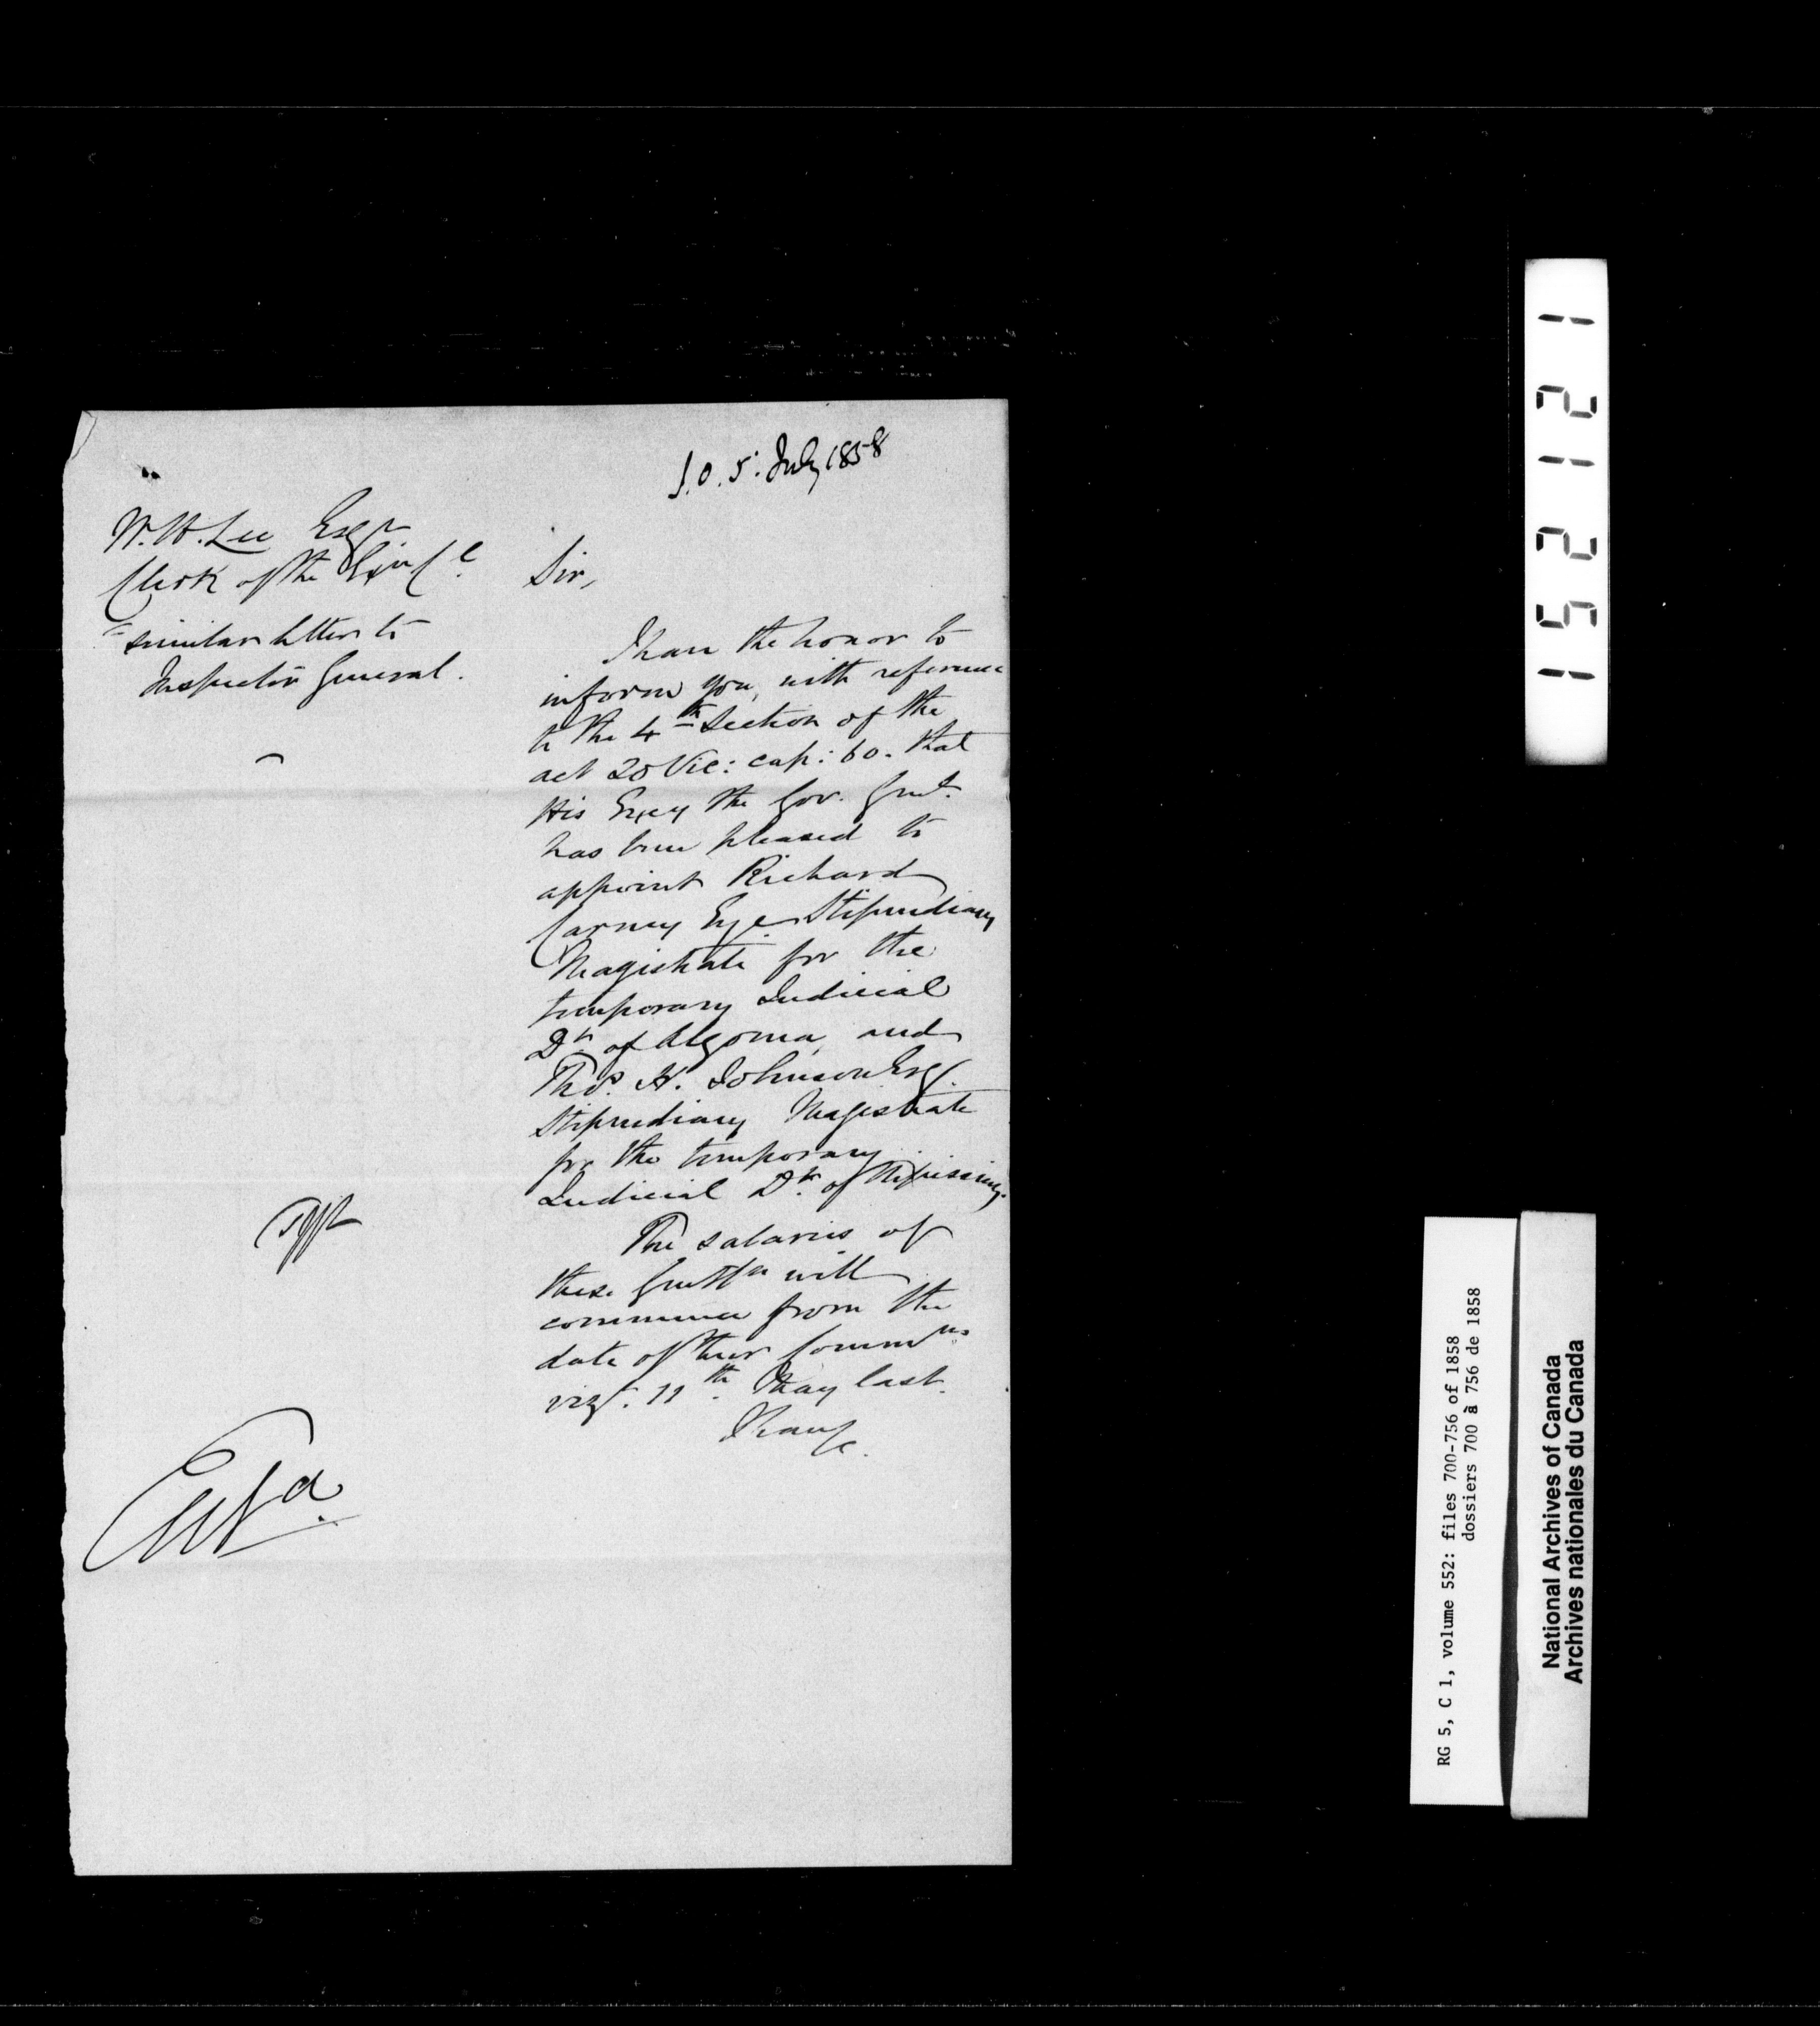 S.O. 5. July 1858
W. H. Lee Esqr.
Clerk of the Exve Cl.
similar letter to
Inspector General.
Sir,
I have the honor to
inform you, with reference
to the 4th Section of the
act 20 Vic: cap: 60. that
His Excy the Gov. Genl.
has been pleased to
appoint Richard
Carney Esqe. Stipendiary
Magistrate for the
temporary Judicial
Dt. of Algoma, and
Thos. H. Johnson Esq.
Stipendiary Magistrate
for the temporary
Judicial Dt. of Nipissing.
The salaries of
these Gentln will
commence from the
date of their Commns
vizt. 11th. May last.
I have &c.
Entd.
152121
RG 5, C 1, volume 552: files 700-756 of 1858
dossiers 700 à 756 de 1858
National Archives of Canada
Archives nationales du Canada